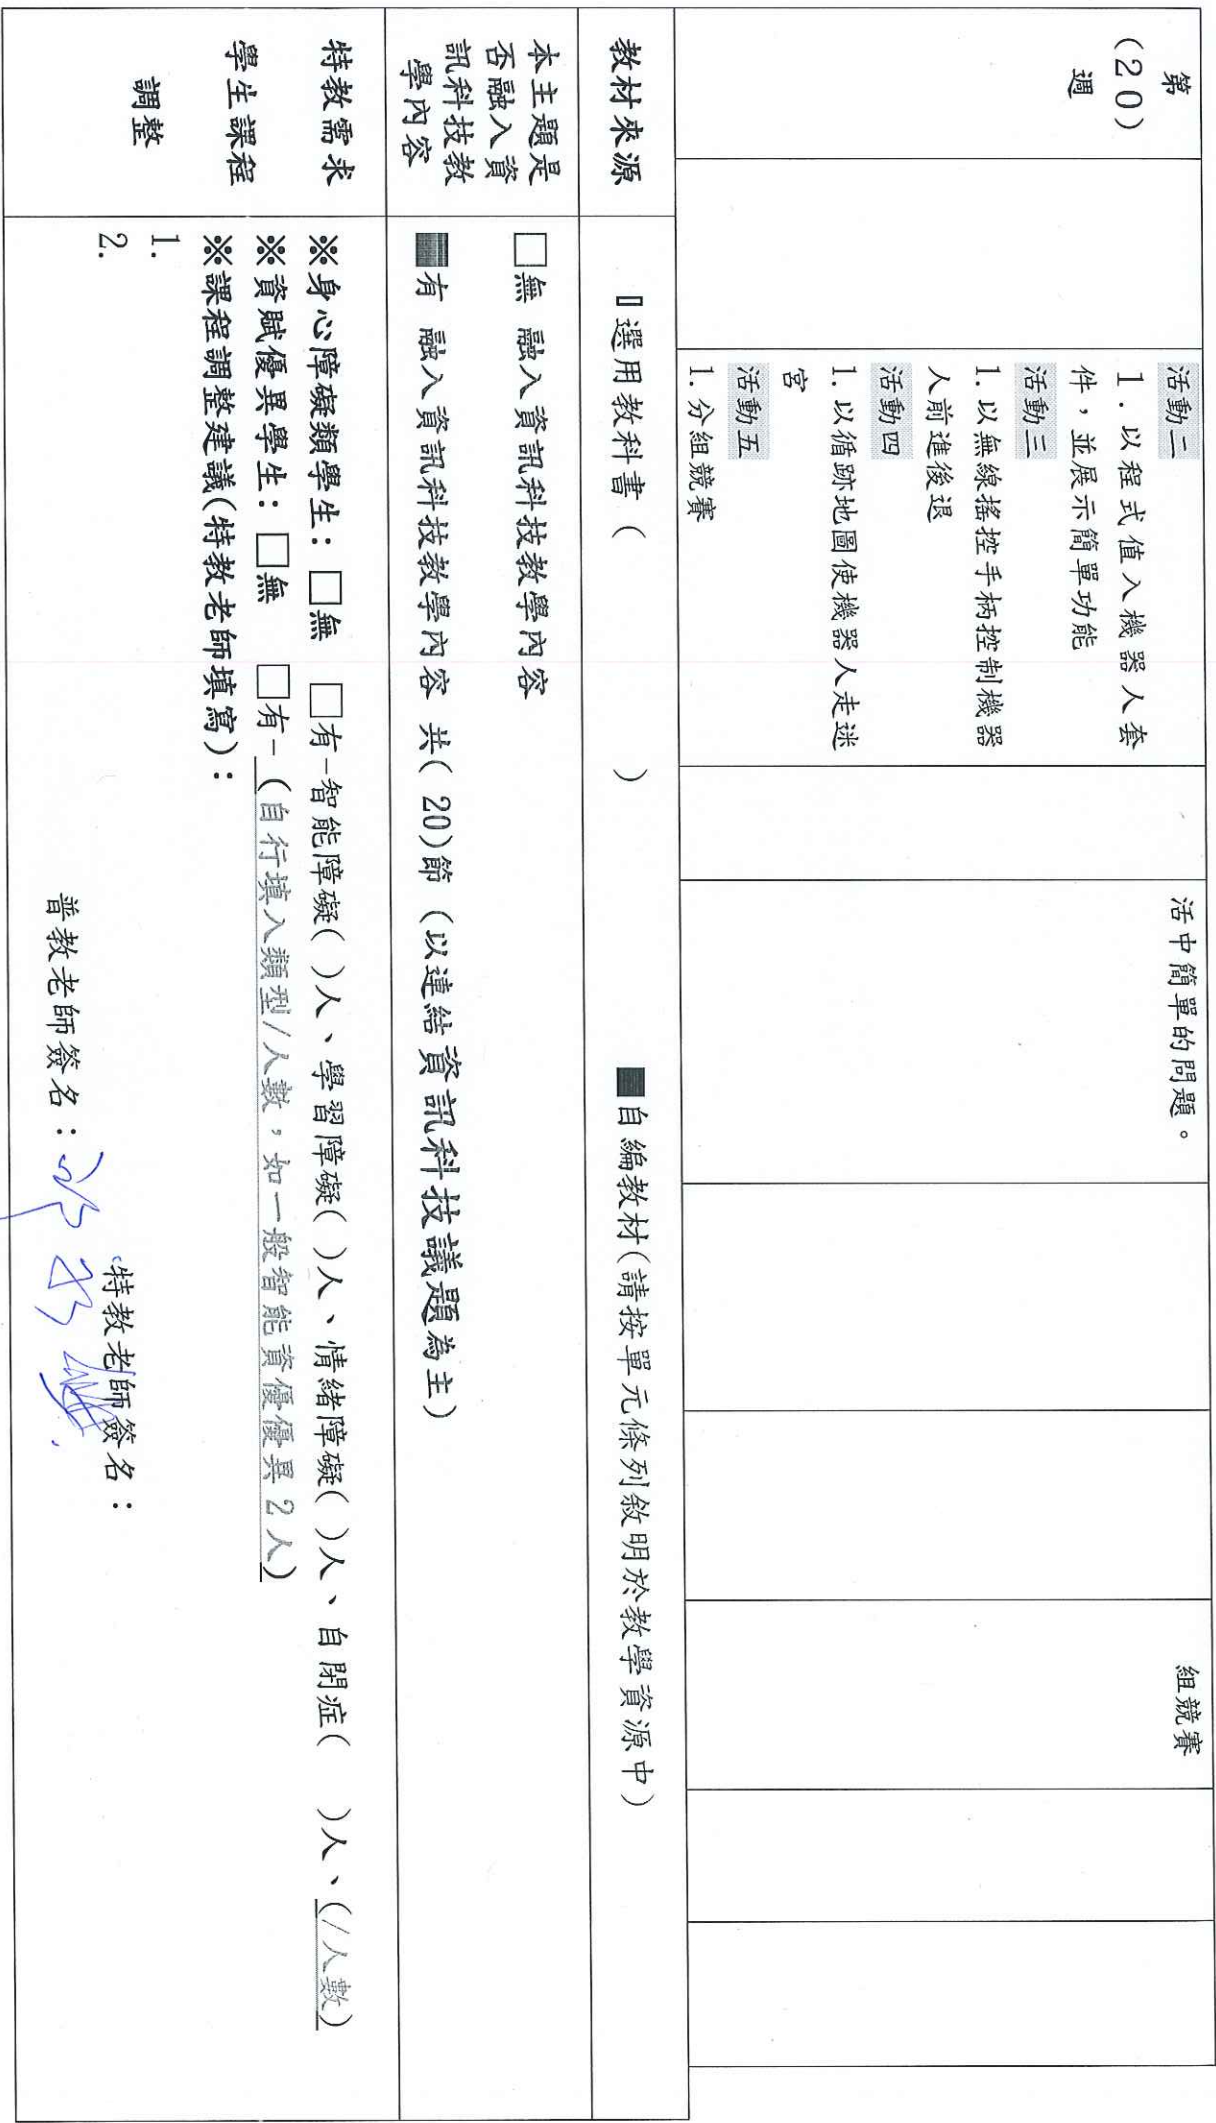 第
(20)
週
活動二
1.以程式值入機器人套
件，並展示簡單功能
活動三
1.以無線搖控手柄控制機器
人前進後退
活動四
1.以循跡地圖使機器人走迷
宮
活動五
1.分組競賽
活中簡單的問題。
組競賽
教材來源
選用教科書（　　　　　）　　　■自編教材(請按單元條列敘明於教學資源中)
本主題是
否融入資
訊科技教
學內容
□無 融入資訊科技教學內容
■有 融入資訊科技教學內容 共( 20)節 (以連結資訊科技議題為主)
特教需求
學生課程
調整
※身心障礙類學生：□無 □有-智能障礙( )人、學習障礙( )人、情緒障礙( )人、自閉症(　 )人、(/人數)
※資賦優異學生：□無 □有-(自行填入類型/人數，如一般智能資優優異2人)
※課程調整建議(特教老師填寫)：
1.
2.
特教老師簽名：
普教老師簽名：